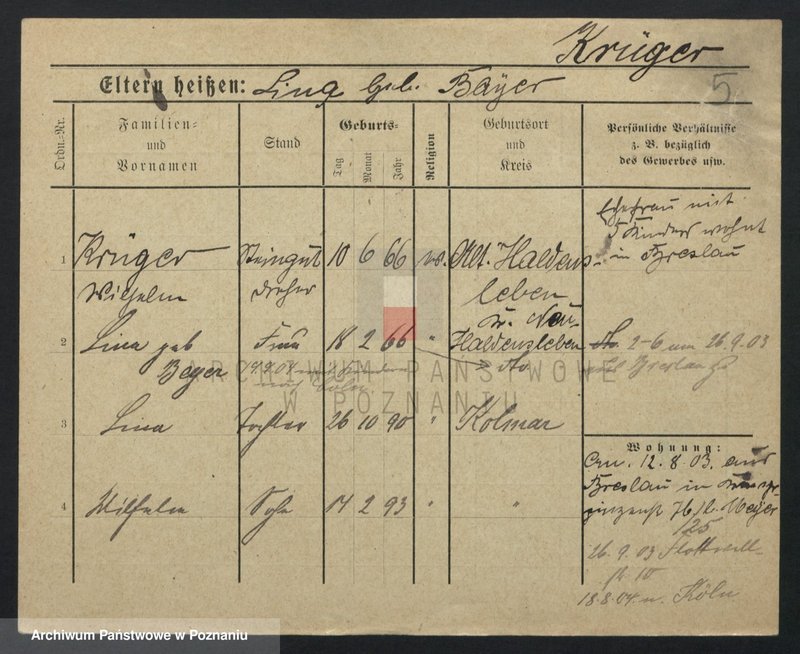 Krüger
5
Eltern heißen: Lina geb. Bayer
Ordn.-Nr.
Familien-
und
Vornamen
Stand
Geburts-
Tag
Monat
Jahr
Religion
Geburtsort
und
Kreis
Persönliche Verhältnisse
z. B. bezüglich
des Gewerbes usw.
Ehefrau mit
5 Kindern wohnt
in Breslau
1 Krüger Steingut 10 6 66 Alt. Haldens-
Wilhelm dreher leben
Kr. Neu-
2 Lina geb Frau 18 2 66 " Haldensleben
Beyer do
2-6 am 26.9.03
ARCHIWUM PAŃSTWOWE
W POZNANIU
3 Lina Tochter 26 10 90 " Kolmar
4 Wilhelm Sohn 14 2 93 " "
Wohnung:
12.8.03. aus
Breslau in
Meyer
125
26.9.03
10
18.8.04 n. Köln
Archiwum Państwowe w Poznaniu